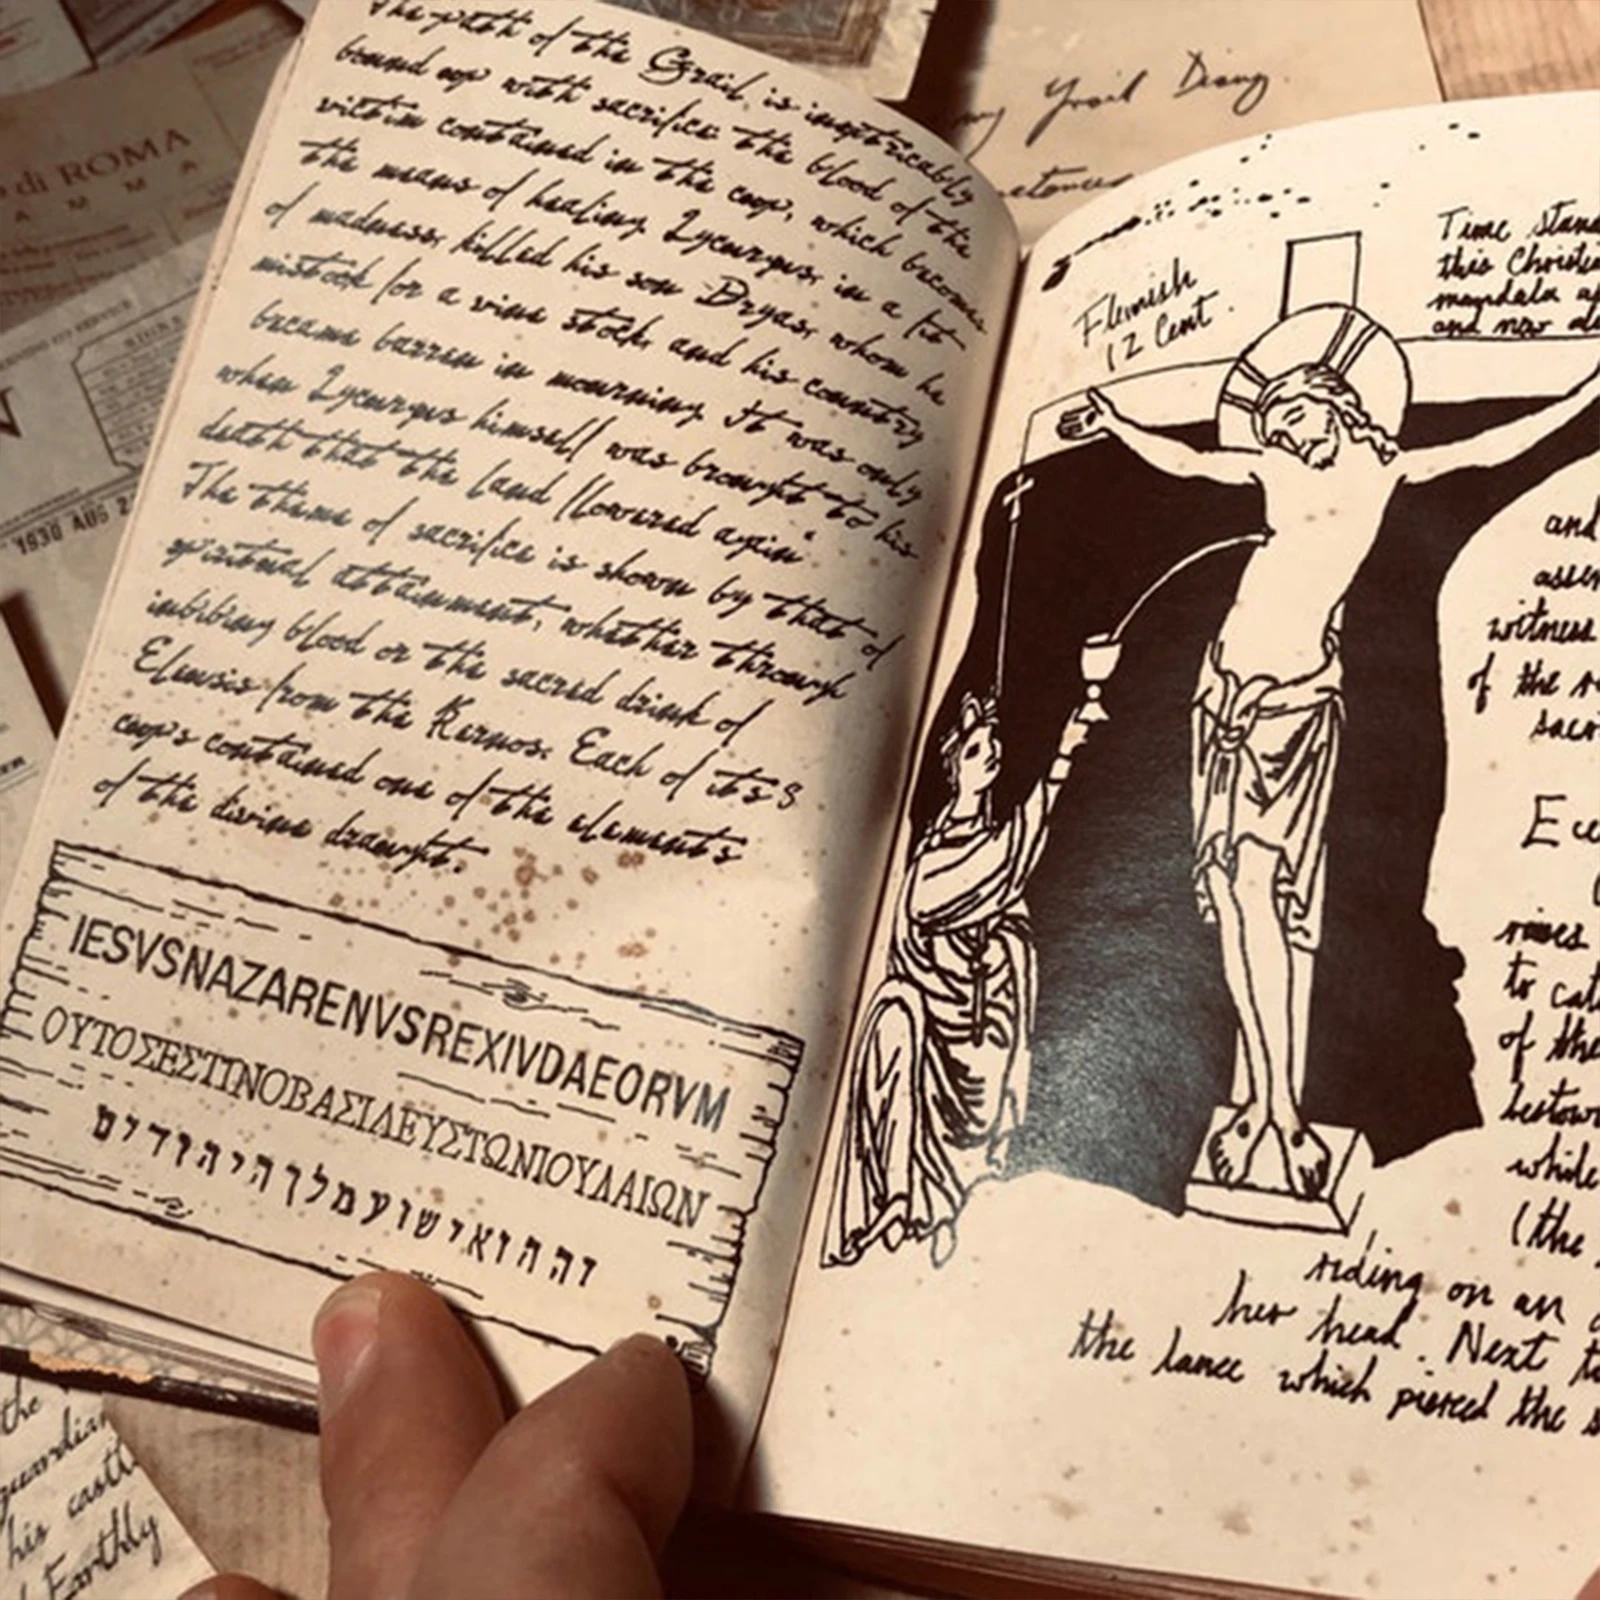 The path of the Grail, is inextricably
bound up with sacrifice the blood of the
victim contained in the cup, which becomes
the means of healing. Lycurgus, in a fit
of madness, killed his son Dryas, whom he
mistook for a vine stock, and his country
became barren in mourning. It was only
when Lycurgus himself was brought to his
death that the land flowered again"
The theme of sacrifice is shown by that of
spiritual attainment, whether through
imbibing blood or the sacred drink of
Eleusis from the Kernos. Each of its
cups contained one of the elements
of the divine draught.
IESVSNAZARENVSREXIVDAEORVM
ΟΥΤΟΣΕΣΤΙΝΟΒΑΣΙΛΕΥΣΤΩΝΙΟΥΔΑΙΩΝ
זההואישועמלךהיהודים
Flemish
12 Cent.
Time
this
mandala
and now
and
witness
of the
riding on an
her head. Next
the lance which pierced the
to
of the
while
(the
di ROMA
1930 AUG 2
Grail Diary.
the
guardian
his castle
Earthly